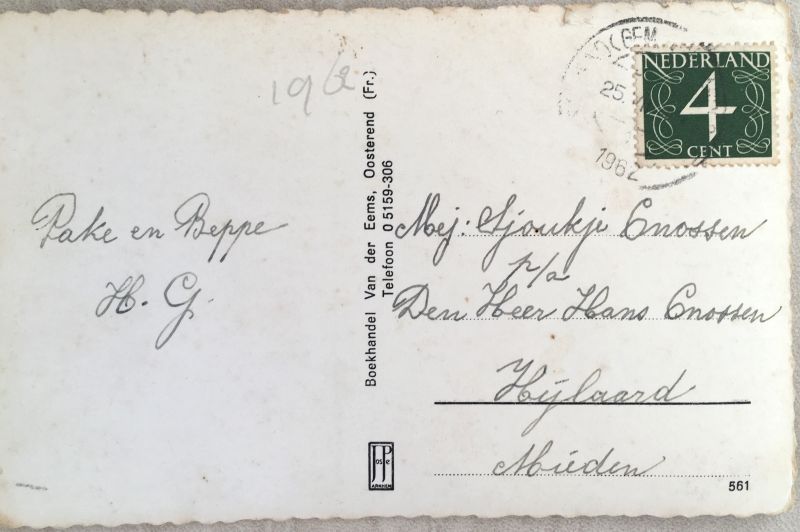 1962
Pake en Beppe
H. G.
Boekhandel Van der Eems, Oosterend (Fr.)
Telefoon 0 5159-306
JosPe
ARNHEM
25.
1962
NEDERLAND
4
CENT
Mej. Sjoukje Cnossen
p/a
Den Heer Hans Cnossen
Hijlaard
Mieden
561